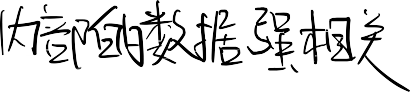 内部的数据强相关